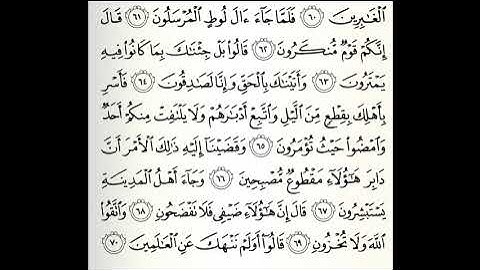 ٱلۡغَٰبِرِينَ ٦٠ فَلَمَّا جَآءَ ءَالَ لُوطٍ ٱلۡمُرۡسَلُونَ ٦١ قَالَ
إِنَّكُمۡ قَوۡمٞ مُّنكَرُونَ ٦٢ قَالُواْ بَلۡ جِئۡنَٰكَ بِمَا كَانُواْ فِيهِ
يَمۡتَرُونَ ٦٣ وَأَتَيۡنَٰكَ بِٱلۡحَقِّ وَإِنَّا لَصَٰدِقُونَ ٦٤ فَأَسۡرِ
بِأَهۡلِكَ بِقِطۡعٖ مِّنَ ٱلَّيۡلِ وَٱتَّبِعۡ أَدۡبَٰرَهُمۡ وَلَا يَلۡتَفِتۡ مِنكُمۡ أَحَدٞ
وَٱمۡضُواْ حَيۡثُ تُؤۡمَرُونَ ٦٥ وَقَضَيۡنَآ إِلَيۡهِ ذَٰلِكَ ٱلۡأَمۡرَ أَنَّ
دَابِرَ هَٰٓؤُلَآءِ مَقۡطُوعٞ مُّصۡبِحِينَ ٦٦ وَجَآءَ أَهۡلُ ٱلۡمَدِينَةِ
يَسۡتَبۡشِرُونَ ٦٧ قَالَ إِنَّ هَٰٓؤُلَآءِ ضَيۡفِي فَلَا تَفۡضَحُونِ ٦٨ وَٱتَّقُواْ
ٱللَّهَ وَلَا تُخۡزُونِ ٦٩ قَالُوٓاْ أَوَلَمۡ نَنۡهَكَ عَنِ ٱلۡعَٰلَمِينَ ٧٠